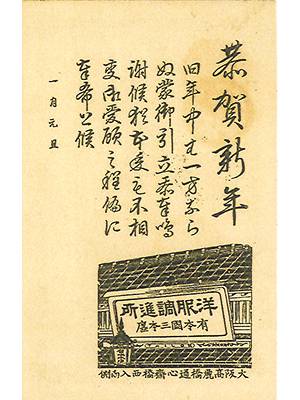 恭賀新年
旧年中は一方なら
ぬ蒙御引立恭奉鳴
謝候猶本年も不相
変御愛顧之程偏に
奉希上候
一月元旦
洋服調進所
大阪高麗橋通心齋橋西入南側